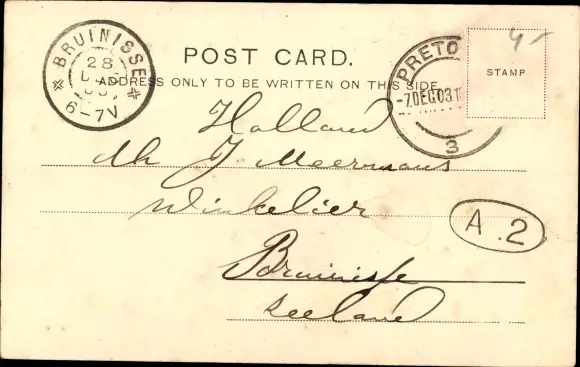 BRUINISSE
28
6-7V
POST CARD.
ADDRESS ONLY TO BE WRITTEN ON THIS SIDE
PRETO
-7DEC03
3
4-
STAMP
Holland
Mr J Meermans
Winkelier
A.2
Bruinisse
Zeeland